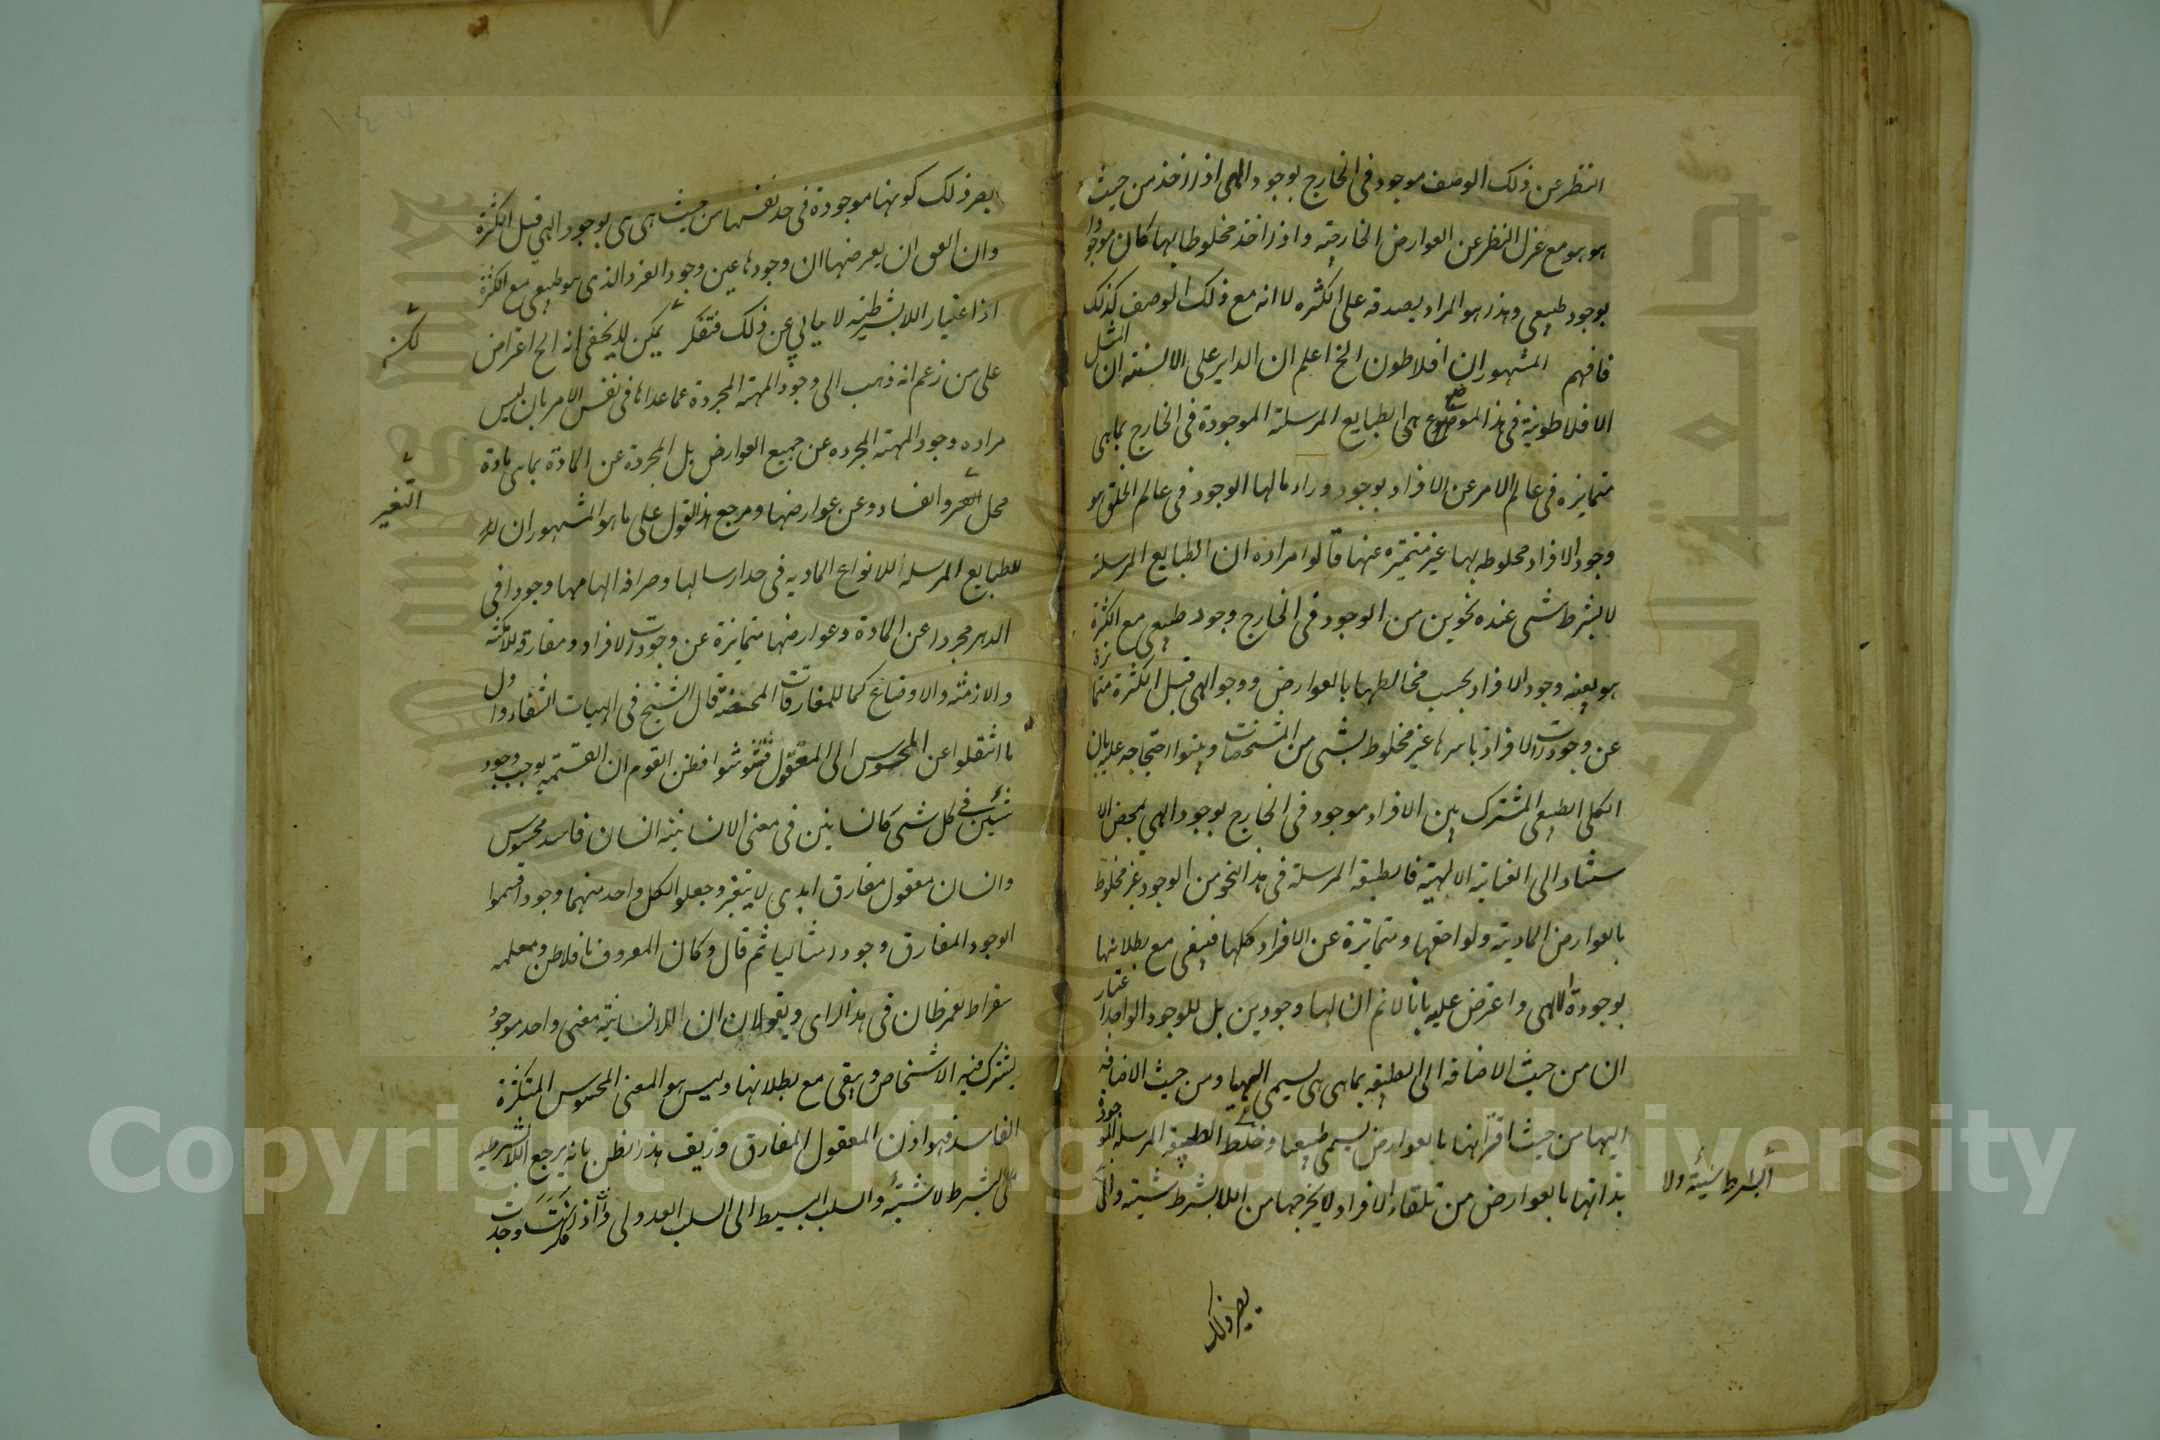 النظر عن ذلك الوصف موجود في الخارج بوجود الهي اذا اخذ من حيث
هو هو مع عزل النظر عن العوارض الخارجية واذا اخذ مخلوطا بها كان موجودا
بوجود طبيعي وهذا هو المراد بصدقه على الكثره لا انه مع ذلك الوصف كذلك
فافهم المشهور ان افلاطون الخ اعلم ان الداير على الالسنة ان المثل
الافلاطونية في هذا الموضع هي الطبايع المرسلة الموجودة في الخارج بما هي
متمايزه في عالم الامر عن الافراد بوجود وراء ما لها الوجود في عالم الخلق هو
وجود الافراد مخلوطه بها غير متميزه عنها قالوا مراده ان الطبايع المرسلة
لا بشرط شي عنده نحوين من الوجود في الخارج وجود طبيعي مع الكثرة
هو بعينه وجود الافراد بحسب مخالطتها بالعوارض ووجود الهي قبل الكثرة متمايزة
عن وجودات الافراد باسرها غير مخلوط بشي من المشخصات وبنوا احتجاجه عليه بان
الكلي الطبيعي المشترك بين الافراد موجود في الخارج بوجود الهي بمحض الا
ستناد الى العناية الالهية فالطبيعة المرسلة في هذا النحو من الوجود غير مخلوط
بالعوارض المادية ولواحقها ومتمايزة عن الافراد كلها فيبقى مع بطلانها
بوجوده الالهي واعترض عليه بانا لانم ان لها وجودين بل للوجود الواحد اعتبار
ان من حيث الاضافه الى الطبيعه بما هي هي يسمى الهيا ومن حيث الاضافه
اليها من حيث اقترانها بالعوارض يسمى طبيعيا وخلط الطبيعة المرسلة الموجودة
بذاتها بالعوارض من تلقاء الافراد لا يخرجها من اللا بشرط شيئية والى
البشرط شيئية ولا
يصر ذلك
يصر ذلك كونها موجودة في حد نفسها من حيث هي هي بوجود الهي قبل الكثرة
وان العق ان يعرضها ان وجودها عين وجود الفرد الذي هو طبيعي مع الكثرة
اذ اعتبار اللا بشرطية لا يابى عن ذلك فتفكر يمكن لا يخفى انه الخ اعتراض
لكنه
على من زعم انه ذهب الى وجود المهية المجردة عما عداها في نفس الامر بان ليس
مراده وجود المهية المجرده عن جميع العوارض بل المجردة عن المادة بما هي مادة
محل التغير والفساد وعن عوارضها ومرجع هذا القول على ما هو المشهور ان
التغير
للطبايع المرسلة للانواع الماديه في حد ارسالها وصرافة ابهامها وجودا في
الدهر مجردا عن المادة وعوارضها متمايزة عن وجودات الافراد ومفارقة للامكنة
والازمنة والاوضاع كما للمفارقات المحضة قال الشيخ في الهيات الشفاء واول
ما انتقلوا عن المحسوس الى المعقول تشوشوا فظن القوم ان القسمة يوجب وجود
شيئين في كل شي كانسانين في معنى الانسانية انسان فاسد محسوس
وانسان معقول مفارق ابدي لا يتغير وجعلوا لكل واحد منهما وجودا فسموا
الوجود المفارق وجودا مثاليا ثم قال وكان المعروف بافلاطن ومعلمه
سقراط يفرطان في هذا الراي ويقولان ان للانسانية معنى واحد موجود
يشترك فيه الاشخاص ويبقى مع بطلانها وليس هو المعنى المحسوس المتكثرة
الفاسد فهو اذن المعقول المفارق وزيف هذا الظن بانه يرجع اللا بشرطيه
الى بشرط لا شيئية والسلب البسيط الى السلب العدولي واذا فكرت وجدت